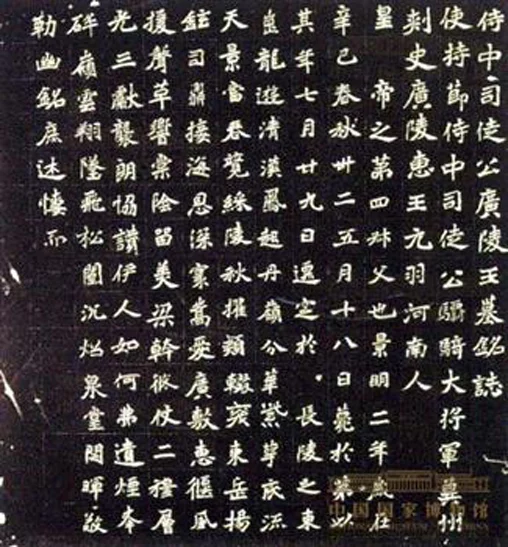 侍中司徒公廣陵王墓銘誌
使持節侍中司徒公驃騎大將軍冀州
刺史廣陵惠王元羽河南人
皇帝之第四叔父也景明二年歲在
辛巳春秋卅二五月十八日薨於第以
其年七月廿九日遷窆於長陵之東
崗龍遊清漢鳳起丹嶺分華紫萼慶流
天景富春覽綵陵秋擢穎輟袞東岳揚
鉉司鼎接海恩深賓嵩愛廣敷惠偃風
援聲草響棠陰留美梁幹彼仗二穆層
光三獻襲朗協讚伊人如何弗遺煙峯
碎嶺雲翔墜飛松闈沉燭泉堂閟暉敬
勒幽銘庶述悽而
中国国家博物馆